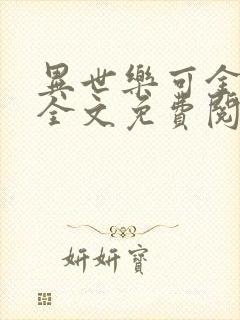 異世樂可全
全文免費閱
妍妍寶